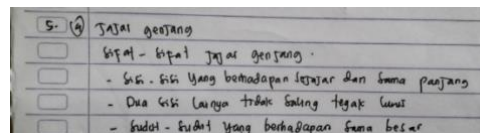 5. (a) Jajar genjang
Sifat - Sifat Jajar genjang .
- Sisi - Sisi yang berhadapan Sejajar dan Sama panjang
- Dua Sisi Lainya tidak Saling tegak Lurus
- Sudut - Sudut yang berhadapan Sama besar